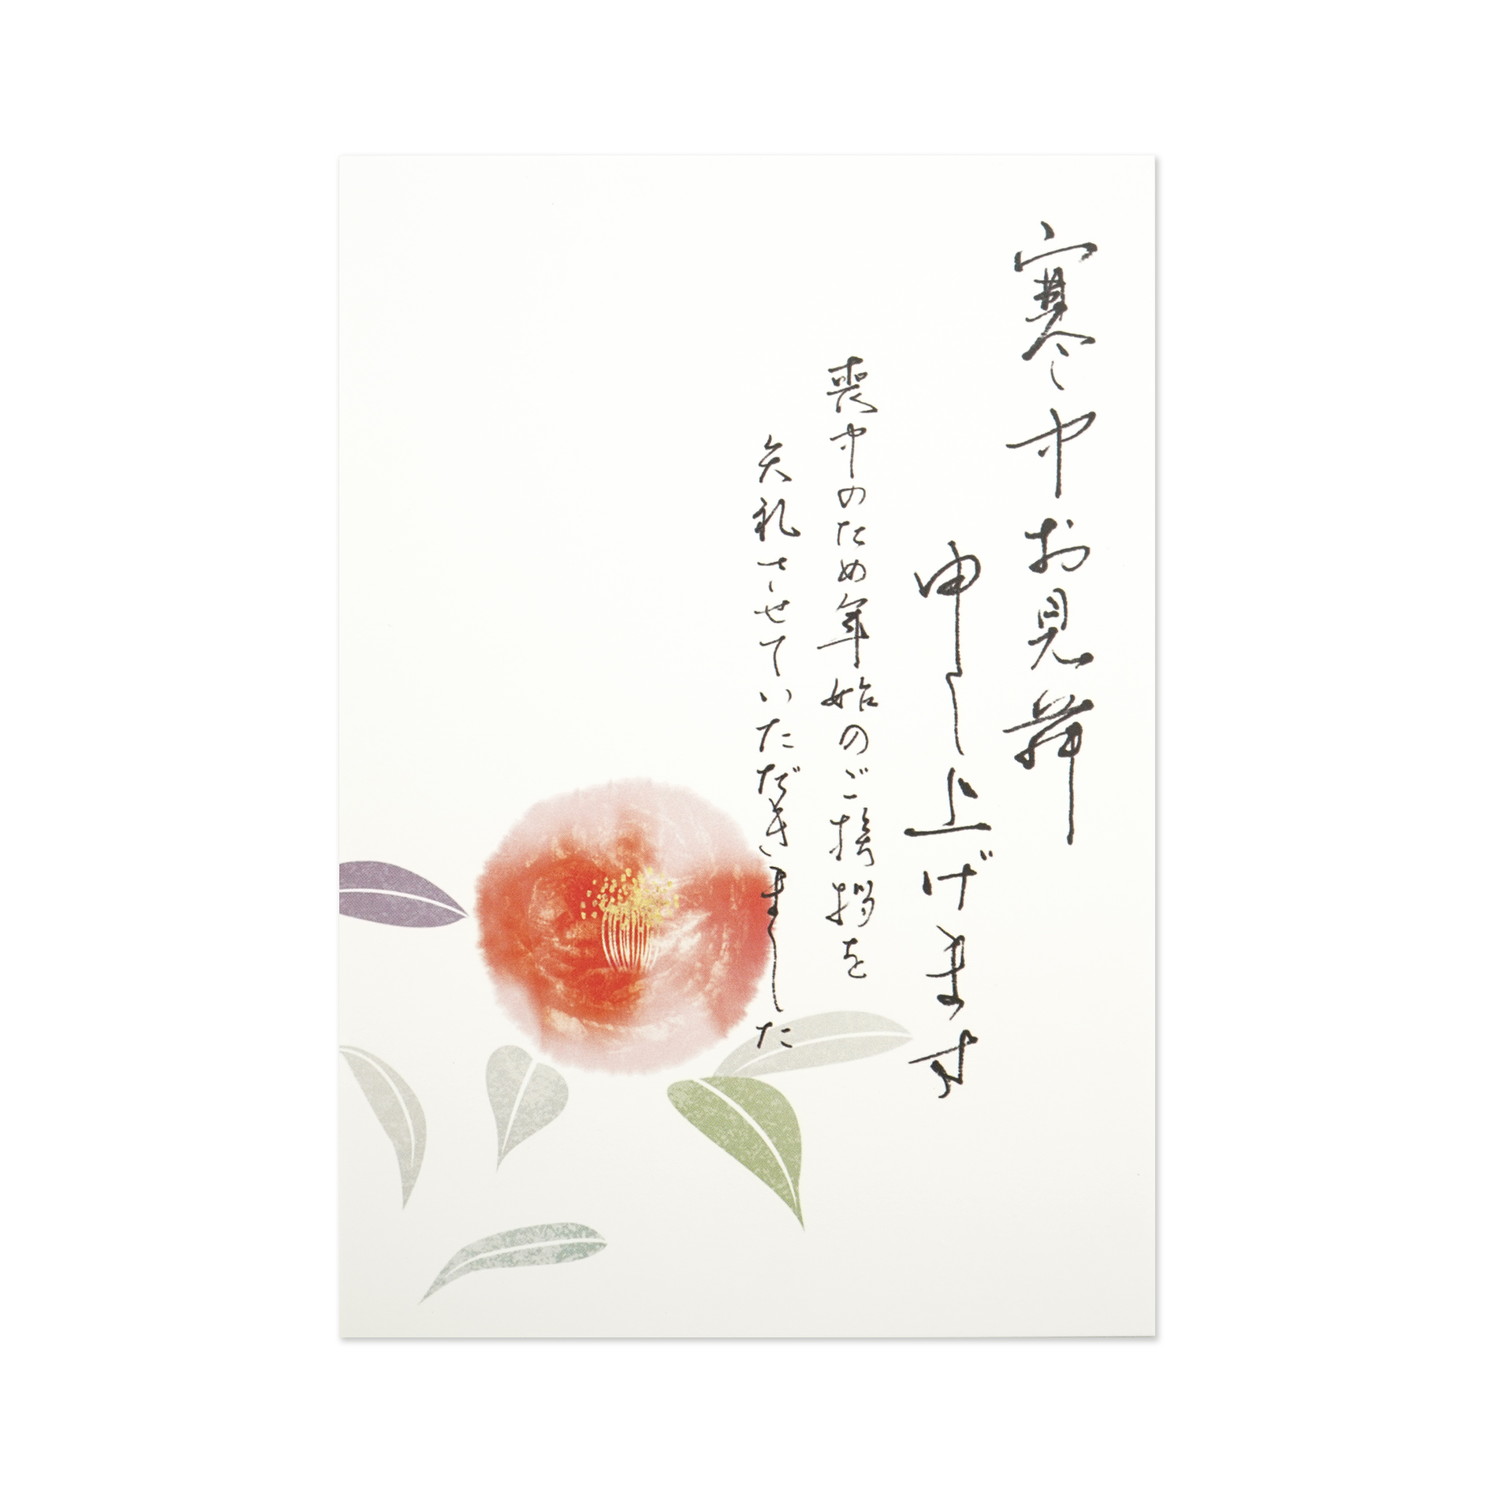 寒中お見舞
申し上げます
喪中のため年始のご挨拶を
失礼させていただきました